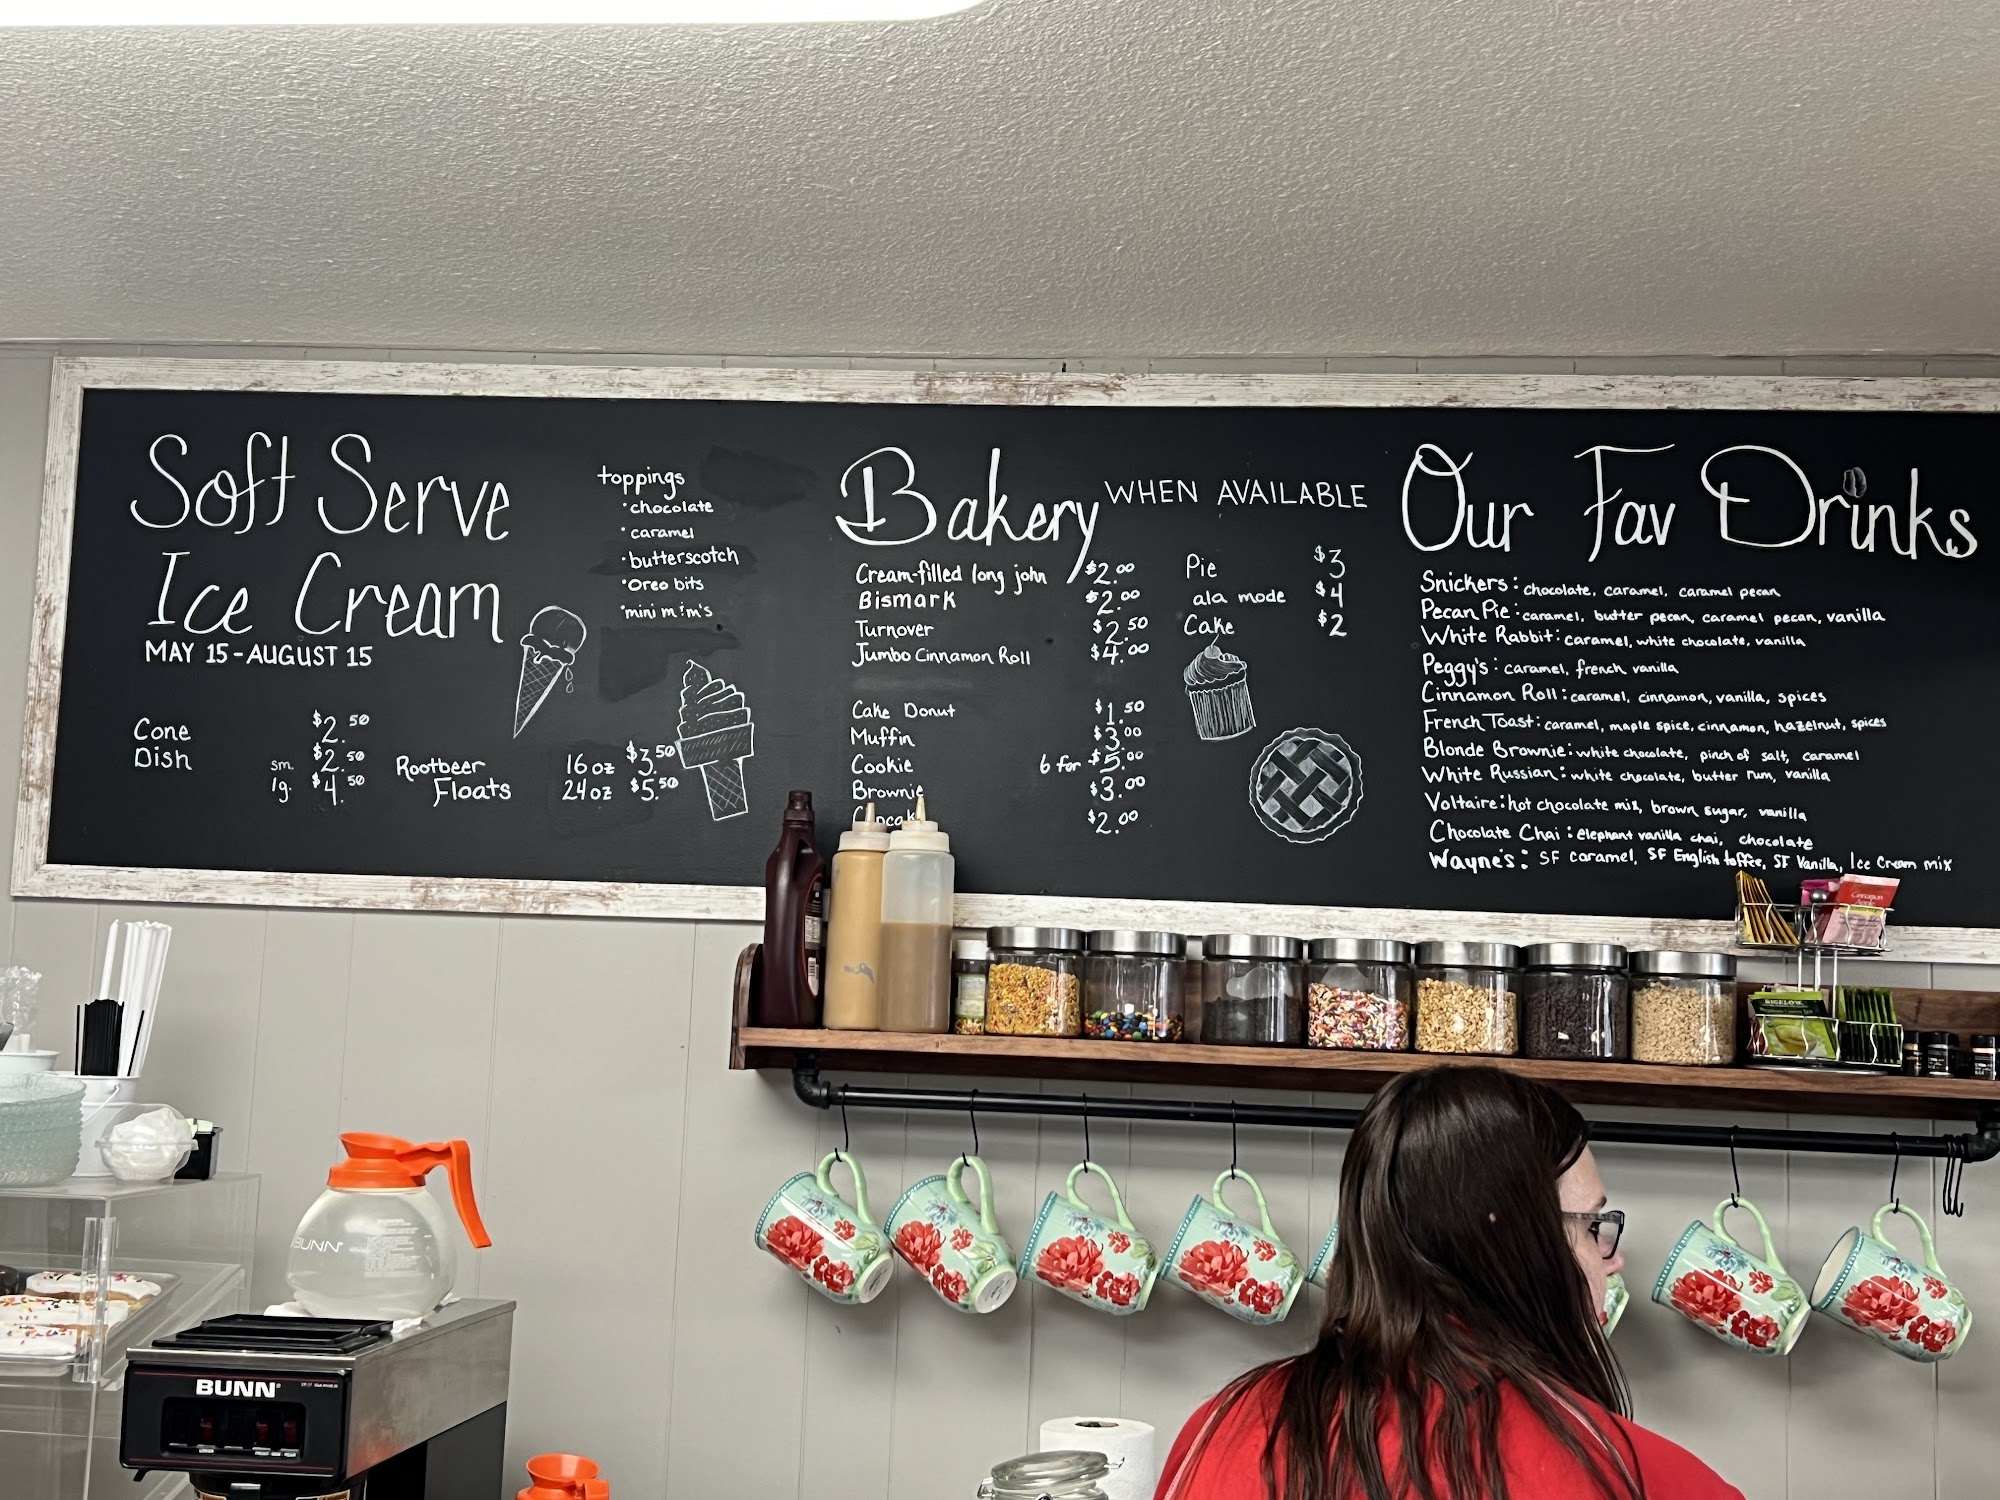 Soft Serve
Ice Cream
MAY 15 - AUGUST 15
Cone $2.50
Dish sm. $2.50
lg. $4.50
Rootbeer Floats 16 oz $3.50
24 oz $5.50
toppings
• chocolate
• caramel
• butterscotch
• Oreo bits
• mini m&m's
Bakery WHEN AVAILABLE
Cream-filled long john $2.00
Bismark $2.00
Turnover $2.50
Jumbo Cinnamon Roll $4.00
Cake Donut $1.50
Muffin $3.00
Cookie 6 for $5.00
Brownie $3.00
Cupcake $2.00
Pie $3
ala mode $4
Cake $2
Our Fav Drinks
Snickers: chocolate, caramel, caramel pecan
Pecan Pie: caramel, butter pecan, caramel pecan, vanilla
White Rabbit: caramel, white chocolate, vanilla
Peggy's: caramel, french vanilla
Cinnamon Roll: caramel, cinnamon, vanilla, spices
French Toast: caramel, maple spice, cinnamon, hazelnut, spices
Blonde Brownie: white chocolate, pinch of salt, caramel
White Russian: white chocolate, butter rum, vanilla
Voltaire: hot chocolate mix, brown sugar, vanilla
Chocolate Chai: elephant vanilla chai, chocolate
Wayne's: SF caramel, SF English toffee, SF Vanilla, Ice Cream mix
Cinnamon
Apple
BIGELOW
BUNN
BUNN